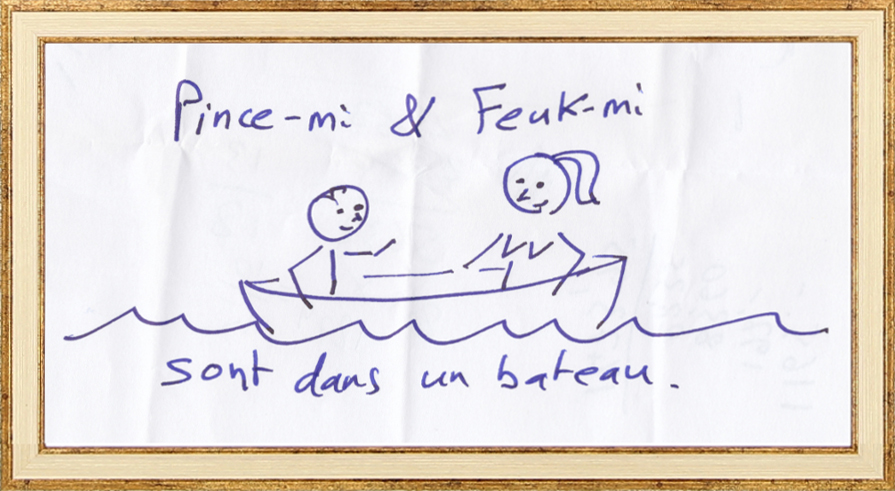 Pince-mi & Feuk-mi
sont dans un bateau.